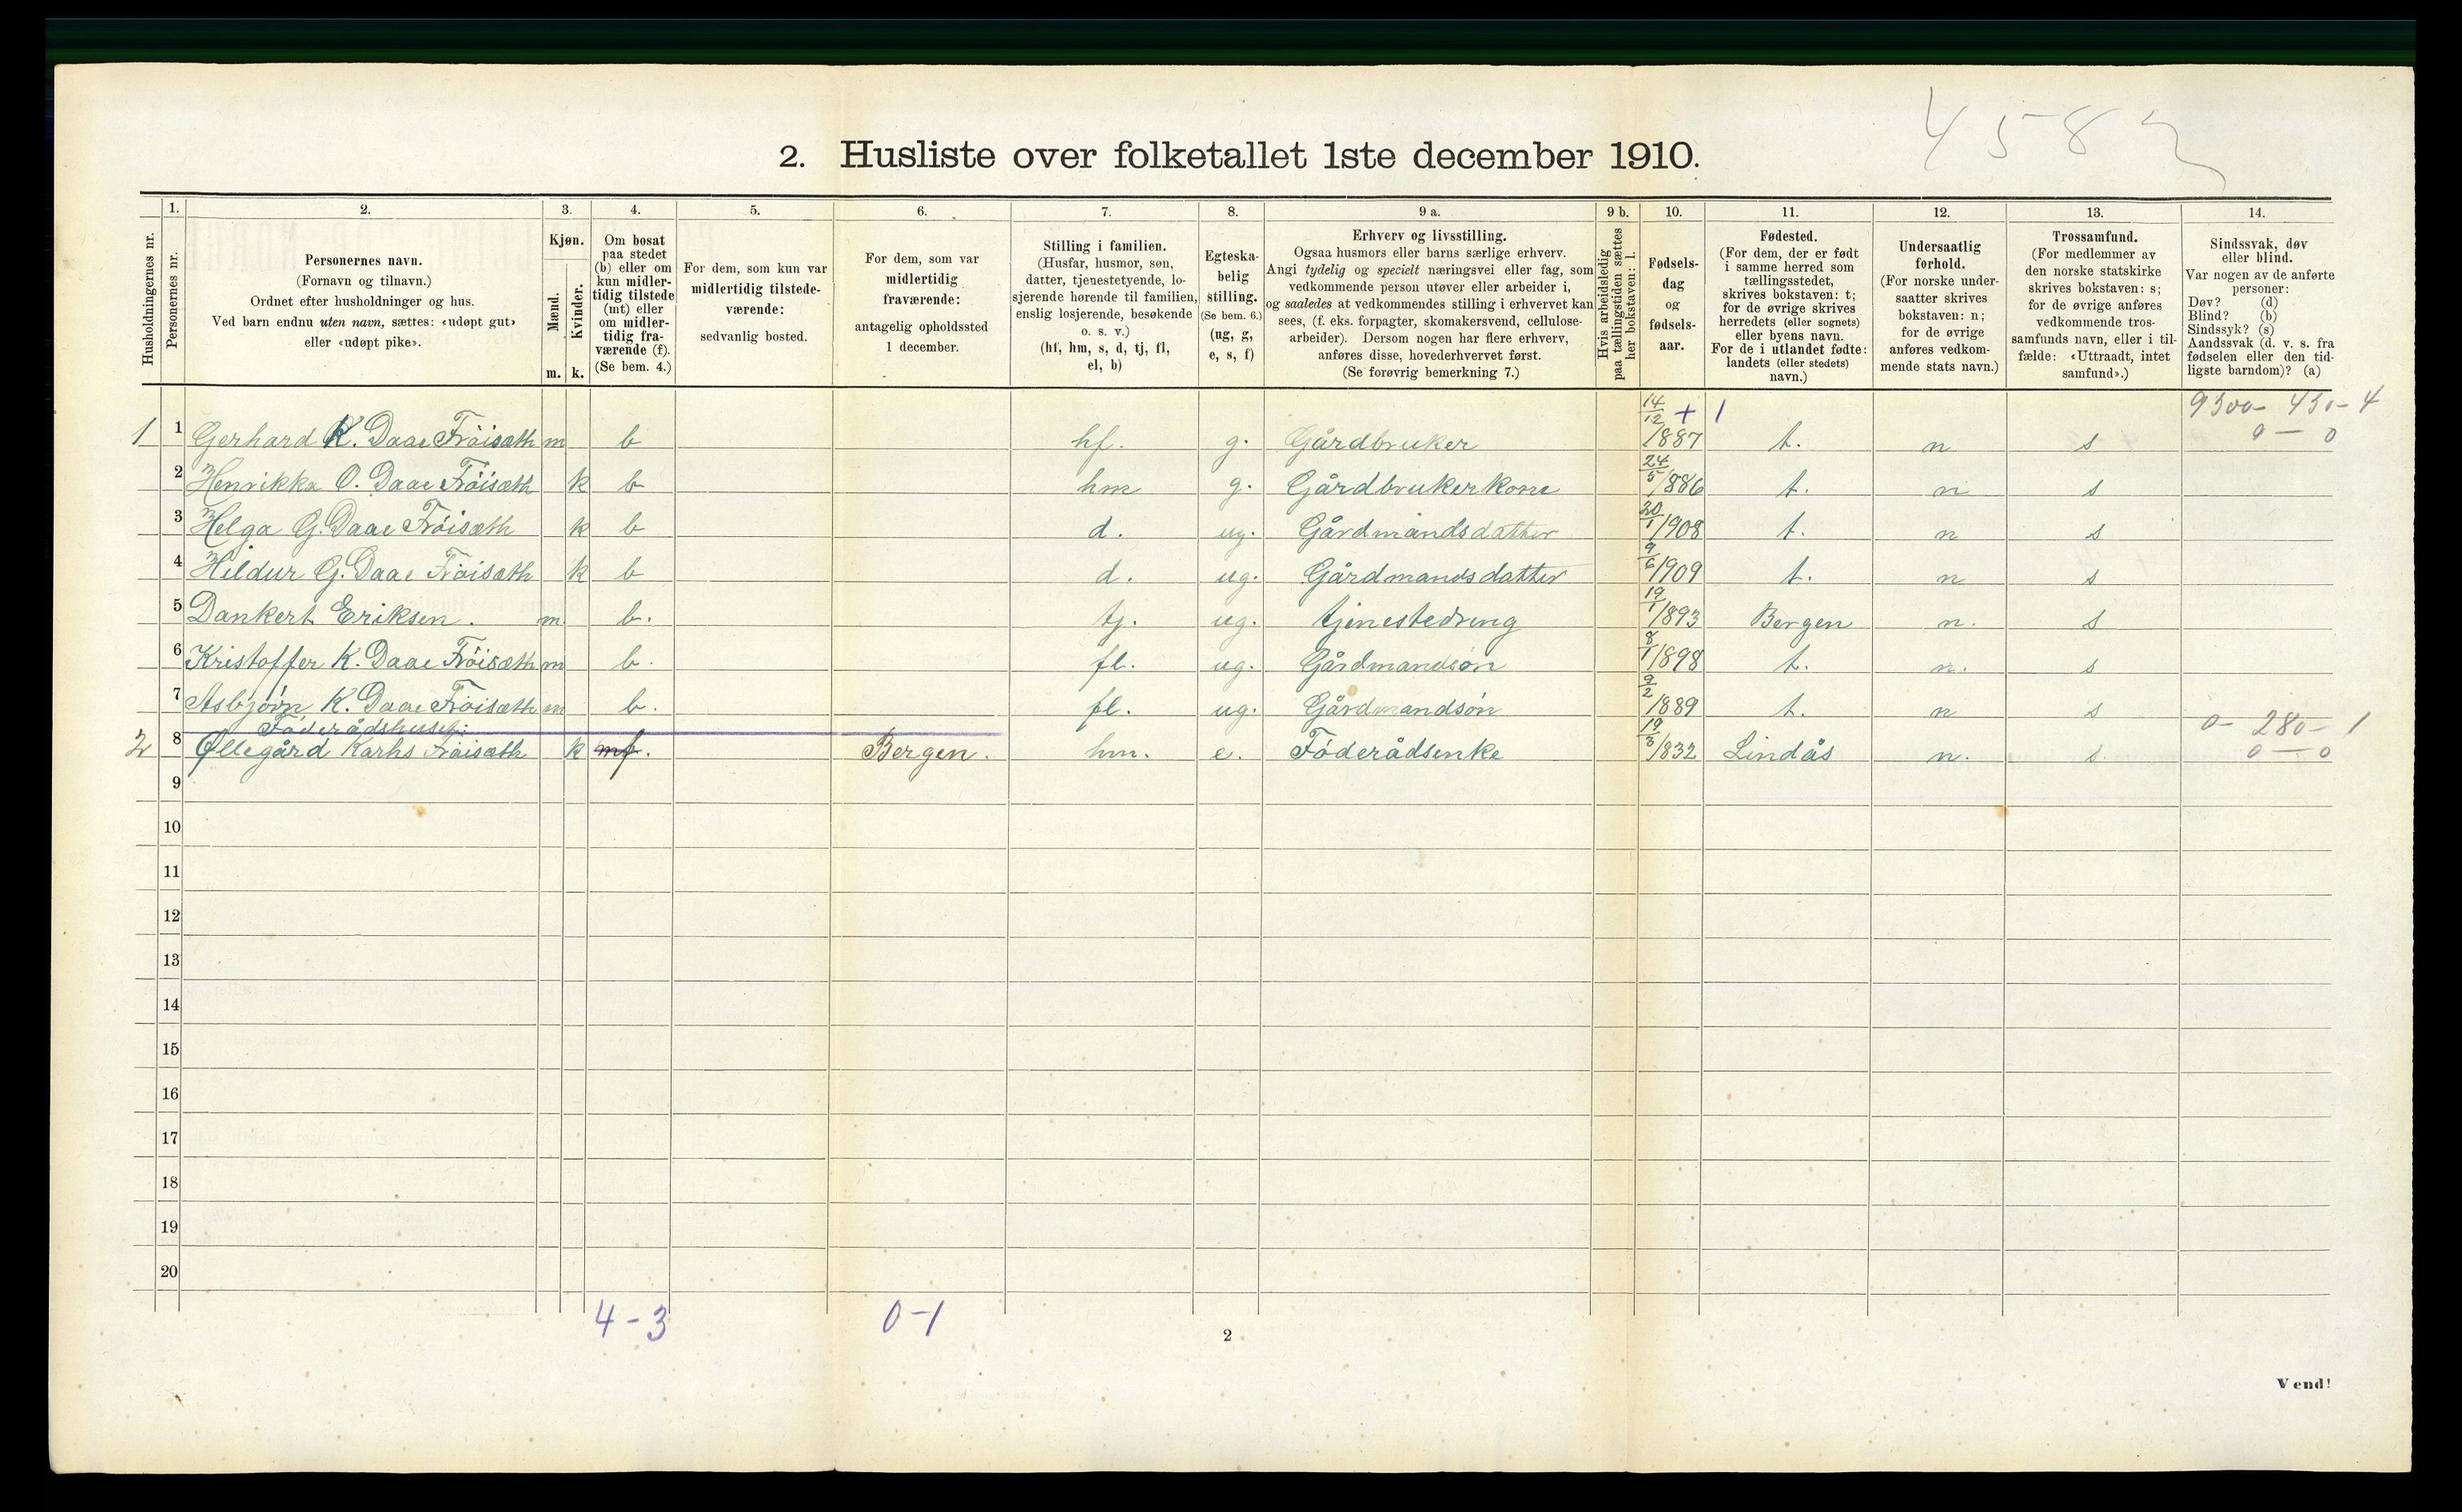 4582
2. Husliste over folketallet 1ste december 1910.
1. 2. 3. 4. 5. 6. 7. 8. 9 a. 9 b. 10. 11. 12. 13. 14.
Husholdningernes nr.
Personernes nr.
Personernes navn.
(Fornavn og tilnavn.)
Ordnet efter husholdninger og hus.
Ved barn endnu uten navn, sættes: «udøpt gut»
eller «udøpt pike».
Kjøn.
Mænd.
Kvinder.
m. k.
Om bosat
paa stedet
(b) eller om
kun midler-
tidig tilstede
(mt) eller
om midler-
tidig fra-
værende (f).
(Se bem. 4.)
For dem, som kun var
midlertidig tilstede-
værende:
sedvanlig bosted.
For dem, som var
midlertidig
fraværende:
antagelig opholdssted
1 december.
Stilling i familien.
(Husfar, husmor, søn,
datter, tjenestetyende, lo-
sjerende hørende til familien,
enslig losjerende, besøkende
o. s. v.)
(hf, hm, s, d, tj, fl,
el, b)
Egteska-
belig
stilling.
(Se bem. 6.)
(ug, g,
e, s, f)
Erhverv og livsstilling.
Ogsaa husmors eller barns særlige erhverv.
Angi tydelig og specielt næringsvei eller fag, som
vedkommende person utøver eller arbeider i,
og saaledes at vedkommendes stilling i erhvervet kan
sees, (f. eks. forpagter, skomakersvend, cellulose-
arbeider). Dersom nogen har flere erhverv,
anføres disse, hovederhvervet først.
(Se forøvrig bemerkning 7.)
Hvis arbeidsledig
paa tællingstiden sættes
her bokstaven: l.
Fødsels-
dag
og
fødsels-
aar.
Fødested.
(For dem, der er født
i samme herred som
tællingsstedet,
skrives bokstaven: t;
for de øvrige skrives
herredets (eller sognets)
eller byens navn.
For de i utlandet fødte:
landets (eller stedets)
navn.)
Undersaatlig
forhold.
(For norske under-
saatter skrives
bokstaven: n;
for de øvrige
anføres vedkom-
mende stats navn.)
Trossamfund.
(For medlemmer av
den norske statskirke
skrives bokstaven: s;
for de øvrige anføres
vedkommende tros-
samfunds navn, eller i til-
fælde: «Uttraadt, intet
samfund».)
Sindssvak, døv
eller blind.
Var nogen av de anførte
personer:
Døv? (d)
Blind? (b)
Sindssyk? (s)
Aandssvak (d. v. s. fra
fødselen eller den tid-
ligste barndom)? (a)
14/12 + 1 9300- 430- 4
1 1 Gerhard K. Daae Fröisæth m b hf. g. Gårdbruker /887 t. n s 0 — 0
2 Henrikka O. Daae Fröisæth k b hm g. Gårdbrukerkone 24/5 /886 t. n s
3 Helga G. Daae Fröisæth k b d. ug. Gårdmandsdatter 20/1 /908 t. n s
4 Hildur G. Daae Fröisæth k b d. ug. Gårdmandsdatter 9/6 /909 t. n s
5 Dankert Eriksen. m. b. tj. ug. tjenestedreng 19/1 /893 Bergen n. s
6 Kristoffer K. Daae Fröisæth m b. fl. ug. Gårdmandsön 8/1 /898 t. n. s
7 Asbjörn K. Daae Fröisæth m b. fl. ug. Gårdmandsön 9/2 /889 t. n s
Föderådshuset: 0- 280- 1
2 8 Øllegård Karhs Fröisæth k mf. Bergen. hm. e. Föderådsenke 19/3 /832 Lindås n. s. 0 — 0
9
10
11
12
13
14
15
16
17
18
19
20
4-3 0-1
2
Vend!